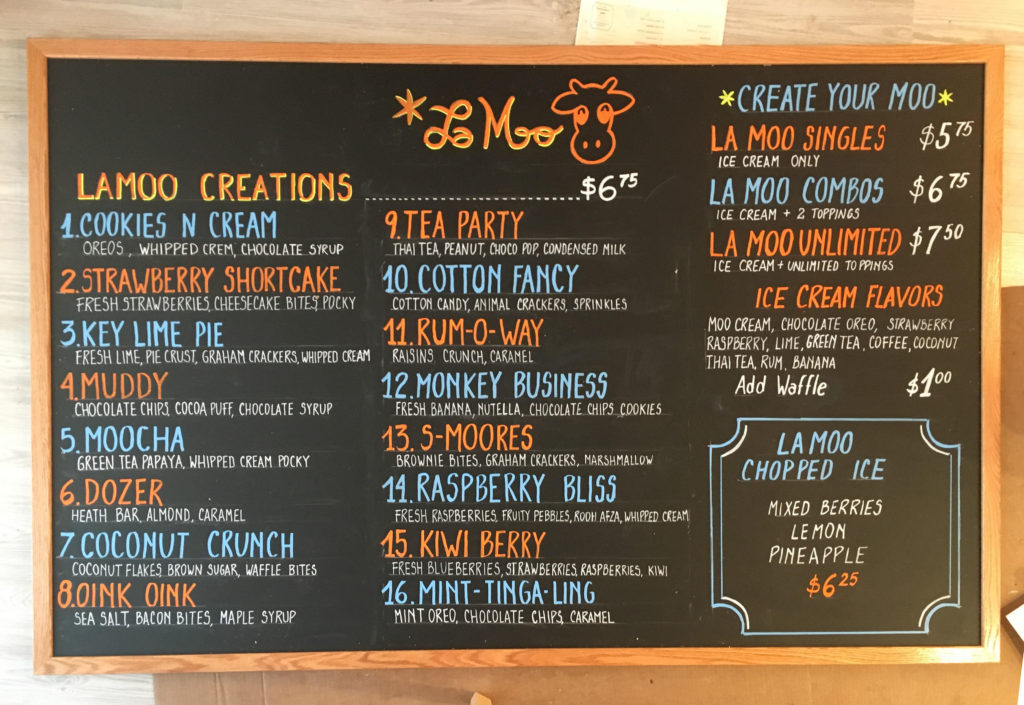 *La Moo
LAMOO CREATIONS $6.75
1. COOKIES N CREAM
OREOS, WHIPPED CREM, CHOCOLATE SYRUP
2. STRAWBERRY SHORTCAKE
FRESH STRAWBERRIES, CHEESECAKE BITES, POCKY
3. KEY LIME PIE
FRESH LIME, PIE CRUST, GRAHAM CRACKERS, WHIPPED CREAM
4. MUDDY
CHOCOLATE CHIPS, COCOA PUFF, CHOCOLATE SYRUP
5. MOOCHA
GREEN TEA PAPAYA, WHIPPED CREAM POCKY
6. DOZER
HEATH BAR, ALMOND, CARAMEL
7. COCONUT CRUNCH
COCONUT FLAKES, BROWN SUGAR, WAFFLE BITES
8. OINK OINK
SEA SALT, BACON BITES, MAPLE SYRUP
9. TEA PARTY
THAI TEA, PEANUT, CHOCO POP, CONDENSED MILK
10. COTTON FANCY
COTTON CANDY, ANIMAL CRACKERS, SPRINKLES
11. RUM-O-WAY
RAISINS, CRUNCH, CARAMEL
12. MONKEY BUSINESS
FRESH BANANA, NUTELLA, CHOCOLATE CHIPS COOKIES
13. S-MOORES
BROWNIE BITES, GRAHAM CRACKERS, MARSHMALLOW
14. RASPBERRY BLISS
FRESH RASPBERRIES, FRUITY PEBBLES, ROOH AFZA, WHIPPED CREAM
15. KIWI BERRY
FRESH BLUEBERRIES, STRAWBERRIES, RASPBERRIES, KIWI
16. MINT-TINGA-LING
MINT OREO, CHOCOLATE CHIPS, CARAMEL
*CREATE YOUR MOO*
LA MOO SINGLES $5.75
ICE CREAM ONLY
LA MOO COMBOS $6.75
ICE CREAM + 2 TOPPINGS
LA MOO UNLIMITED $7.50
ICE CREAM + UNLIMITED TOPPINGS
ICE CREAM FLAVORS
MOO CREAM, CHOCOLATE OREO, STRAWBERRY
RASPBERRY, LIME, GREEN TEA, COFFEE, COCONUT
THAI TEA, RUM, BANANA
Add Waffle $1.00
LA MOO
CHOPPED ICE
MIXED BERRIES
LEMON
PINEAPPLE
$6.25